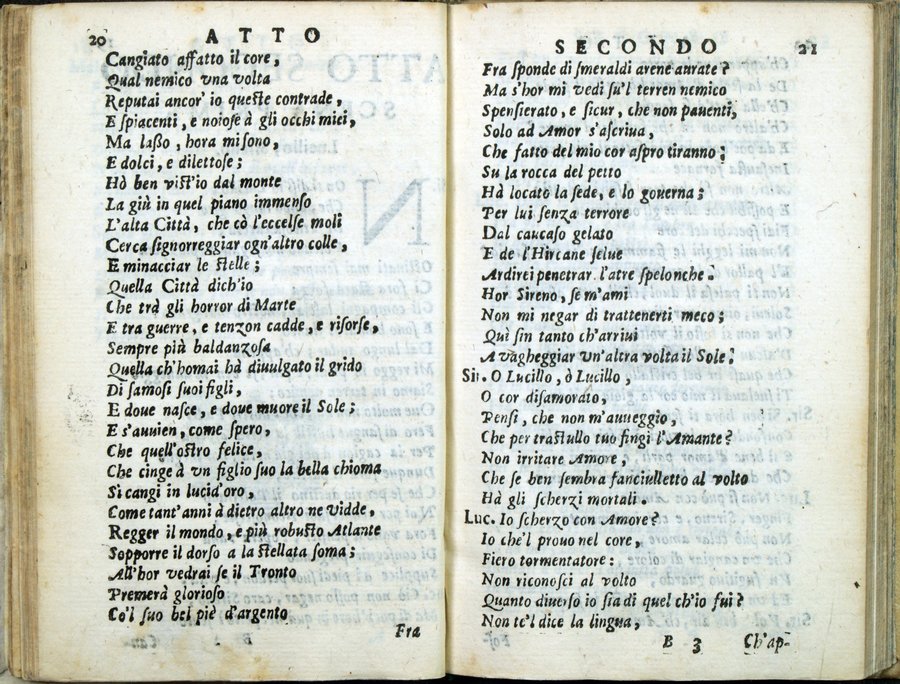 20 ATTO
Cangiato affatto il core,
Qual nemico vna volta
Reputai ancor' io queſte contrade,
E ſpiacenti, e noioſe à gli occhi miei,
Ma laſſo, hora mi ſono,
E dolci, e dilettoſe;
Hò ben viſt'io dal monte
La giù in quel piano immenſo
L'alta Città, che cò l'eccelſe moli
Cerca ſignorreggiar ogn'altro colle,
E minacciar le ſtelle;
Quella Città dich'io
Che trà gli horror di Marte
E tra guerre, e tenzon cadde, e riſorſe,
Sempre più baldanzoſa
Quella ch'homai hà diuulgato il grido
Di famoſi ſuoi figli,
E doue naſce, e doue muore il Sole;
E s'auuien, come ſpero,
Che quell'oſtro felice,
Che cinge à vn figlio ſuo la bella chioma
Si cangi in lucid'oro,
Come tant'anni à dietro altro ne vidde,
Regger il mondo, e più robuſto Atlante
Sopporre il dorſo a la ſtellata ſoma;
All'hor vedrai ſe il Tronto
Premerà glorioſo
Co'l ſuo bel piè d'argento
Fra
SECONDO 21
Fra ſponde di ſmeraldi arene aurate?
Ma s'hor mi vedi ſu'l terren nemico
Spenſierato, e ſicur, che non pauenti,
Solo ad Amor s'aſcriua,
Che fatto del mio cor aſpro tiranno;
Su la rocca del petto
Hà locato la ſede, e lo gouerna;
Per lui ſenza terrore
Dal caucaſo gelato
E de l'Hircane ſelue
Ardirei penetrar l'atre ſpelonche.
Hor Sireno, ſe m'ami
Non mi negar di trattenerti meco;
Quì ſin tanto ch'arriui
A vagheggiar vn'altra volta il Sole;
Sir. O Lucillo, ò Lucillo,
O cor diſamorato,
Penſi, che non m'auueggio,
Che per traſtullo tuo fingi l'Amante?
Non irritare Amore,
Che ſe ben ſembra fanciulletto al volto
Hà gli ſcherzi mortali.
Luc. Io ſcherzo con Amore?
Io che'l prouo nel core,
Fiero tormentatore:
Non riconoſci al volto
Quanto diuerſo io ſia di quel ch'io fui?
Non te'l dice la lingua,
B 3 Ch'ap-